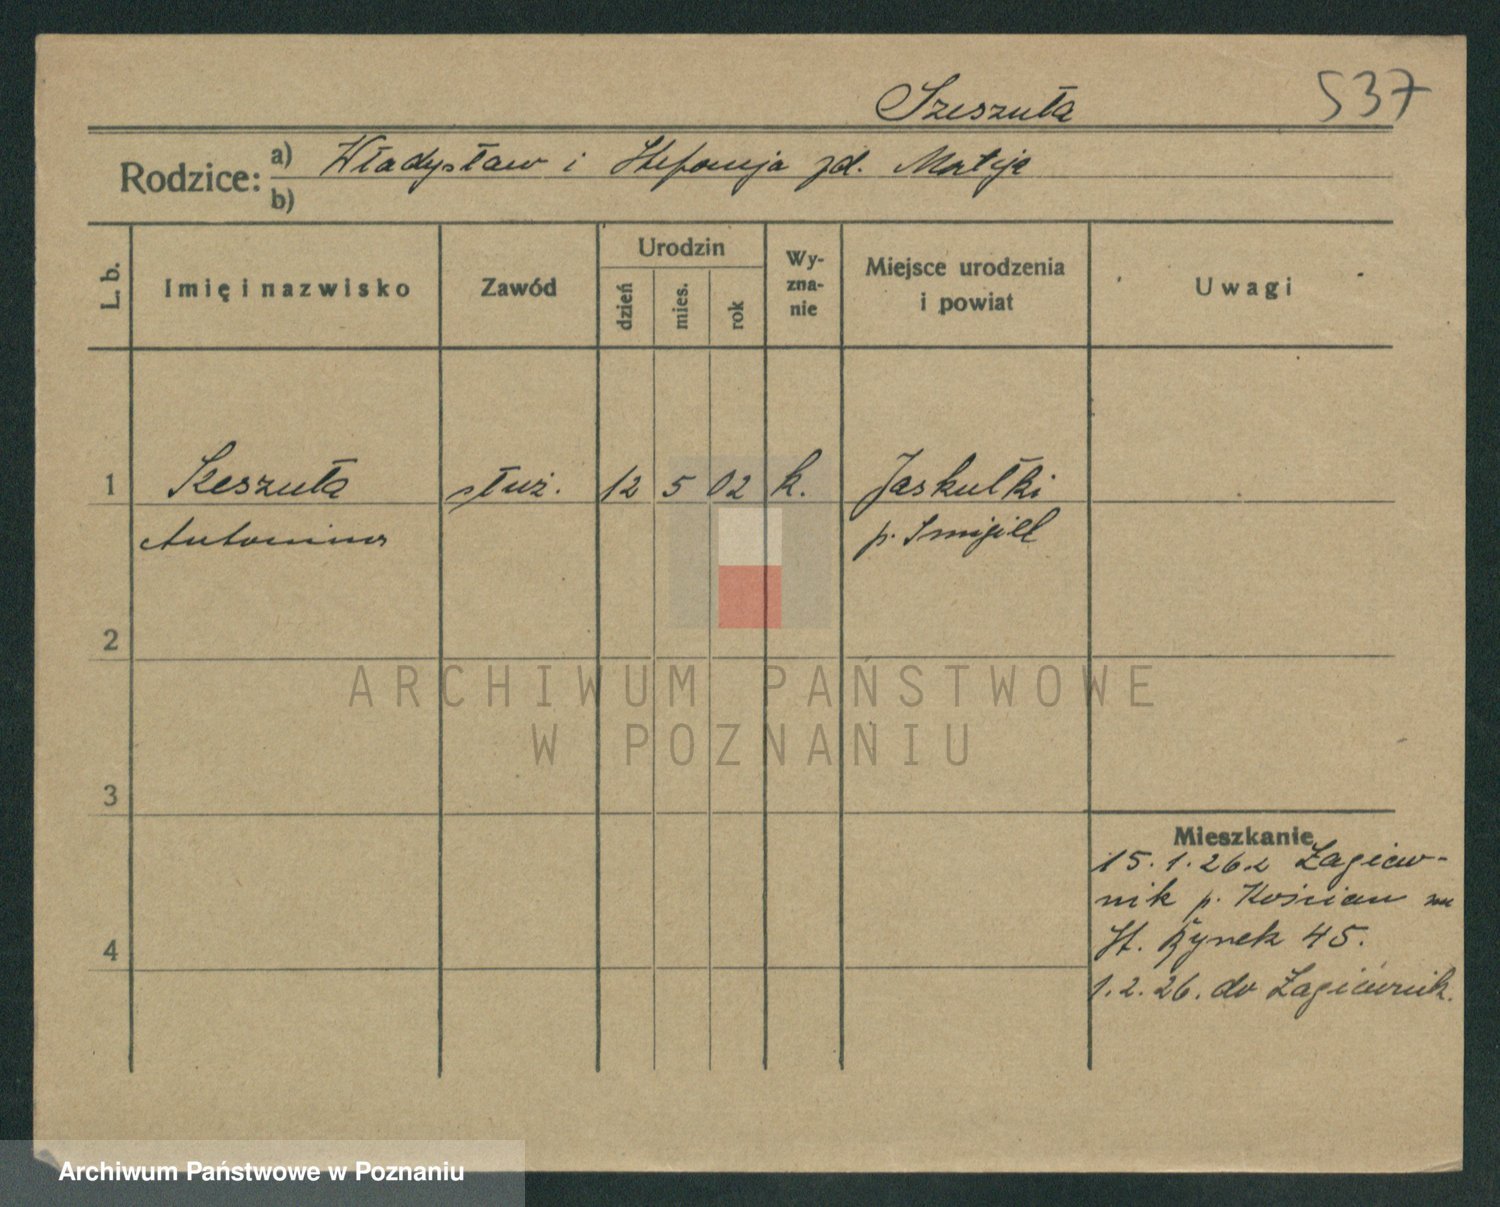 Szeszuła 537
Rodzice: a) Władysław i Stefanja zd. Matyja
b)
L. b. Imię i nazwisko Zawód Urodzin dzień mies. rok Wy-zna-nie Miejsce urodzenia i powiat Uwagi
1 Szeszuła służ. 12 5 02 k. Jaskułki
Antonina p. Smigiel
2
ARCHIWUM PAŃSTWOWE
W POZNANIU
3
Mieszkanie
15.1.26 z Łagiew-
nik p. Kościan
St. Rynek 45.
4
1.2.26. do Łagiewnik.
Archiwum Państwowe w Poznaniu